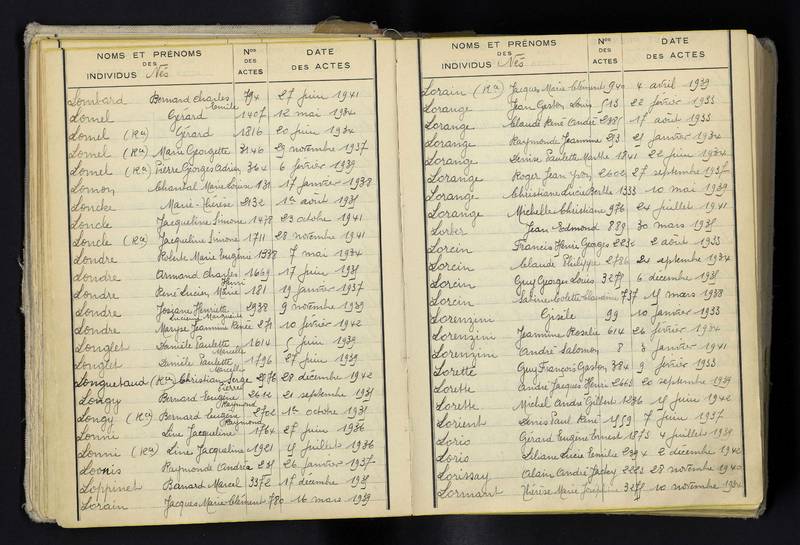 NOMS ET PRÉNOMS
DES
INDIVIDUS Nés
Nos
DES
ACTES
DATE
DES ACTES
Lombard Bernard Charles Emile 794 27 juin 1941
Lomel Gérard 1407 12 mai 1934
Lomel (Ra) Gérard 1816 20 juin 1934
Lomel (Ra) Marie Georgette 3146 29 novembre 1937
Lomel (Ra) Pierre Georges Adrien 364 6 février 1939
Lomon Chantal Marie Louise 131 17 janvier 1938
Loncke Marie-Thérèse 2132 1er août 1931
Loncle Jacqueline Simone 1478 23 octobre 1941
Loncle (Ra) Jacqueline Simone 1711 28 novembre 1941
Londre Rolande Marie Eugénie 1338 7 mai 1934
Londre Armand Charles Henri 1669 17 juin 1931
Londre René Lucien Marie 181 19 janvier 1937
Londre Josiane Henriette Lucienne Marguerite 2938 9 novembre 1939
Londre Maryse Jeannine Renée 271 10 février 1942
Longlet Camille Paulette Marcelle 1614 5 juin 1939
Longlet Camille Paulette Marcelle 1796 27 juin 1939
Longuetaud (Ra) Christian Serge Pierre 2976 28 décembre 1942
Longy Bernard Eugène Raymond 2612 21 septembre 1931
Longy (Ra) Bernard Eugène Raymond 2702 1er octobre 1931
Lonni Line Jacqueline 1764 27 juin 1936
Lonni (Ra) Line Jacqueline 1921 15 juillet 1936
Loonis Raymonde Andréa 231 26 janvier 1937
Loppinet Bernard Marcel 3372 17 décembre 1931
Lorain Jacques Marie Clément 780 16 mars 1939
NOMS ET PRÉNOMS
DES
INDIVIDUS Nés
Nos
DES
ACTES
DATE
DES ACTES
Lorain (Ra) Jacques Marie Clément 940 4 avril 1939
Lorange Jean Gaston Louis 513 22 février 1933
Lorange Claude René André 17 août 1933
Lorange Raymonde Jeannine 293 21 janvier 1934
Lorange Denise Paulette Marthe 1841 22 juin 1934
Lorange Roger Jean Yvon 2602 27 septembre 1937
Lorange Christiane Lucie Berthe 1333 10 mai 1939
Lorange Michelle Christiane 976 24 juillet 1941
Lorber Jean Edmond 889 30 mars 1931
Lorcin Francis Henri Georges 2232 2 août 1933
Lorcin Claude Philippe 2786 24 septembre 1934
Lorcin Guy Georges Louis 3277 6 décembre 1931
Lorcin Sabine Colette 737 15 mars 1938
Lorenzini Gisèle 99 10 janvier 1933
Lorenzini Jeannine Roselie 614 26 février 1934
Lorenzini André Salomon 8 3 janvier 1941
Lorette Guy François Gaston 384 9 février 1933
Lorette André Jacques Henri 2663 20 septembre 1939
Lorette Michel André Gilbert 1236 15 juin 1942
Lorient Denis Paul René 1559 7 juin 1937
Loris Gérard Eugène Ernest 1873 4 juillet 1939
Loris Liliane Lucie Emilie 2894 2 décembre 1942
Lorissay Alain André Jacky 2223 28 novembre 1940
Lormant Thérèse Marie Joséphine 3277 10 novembre 1934